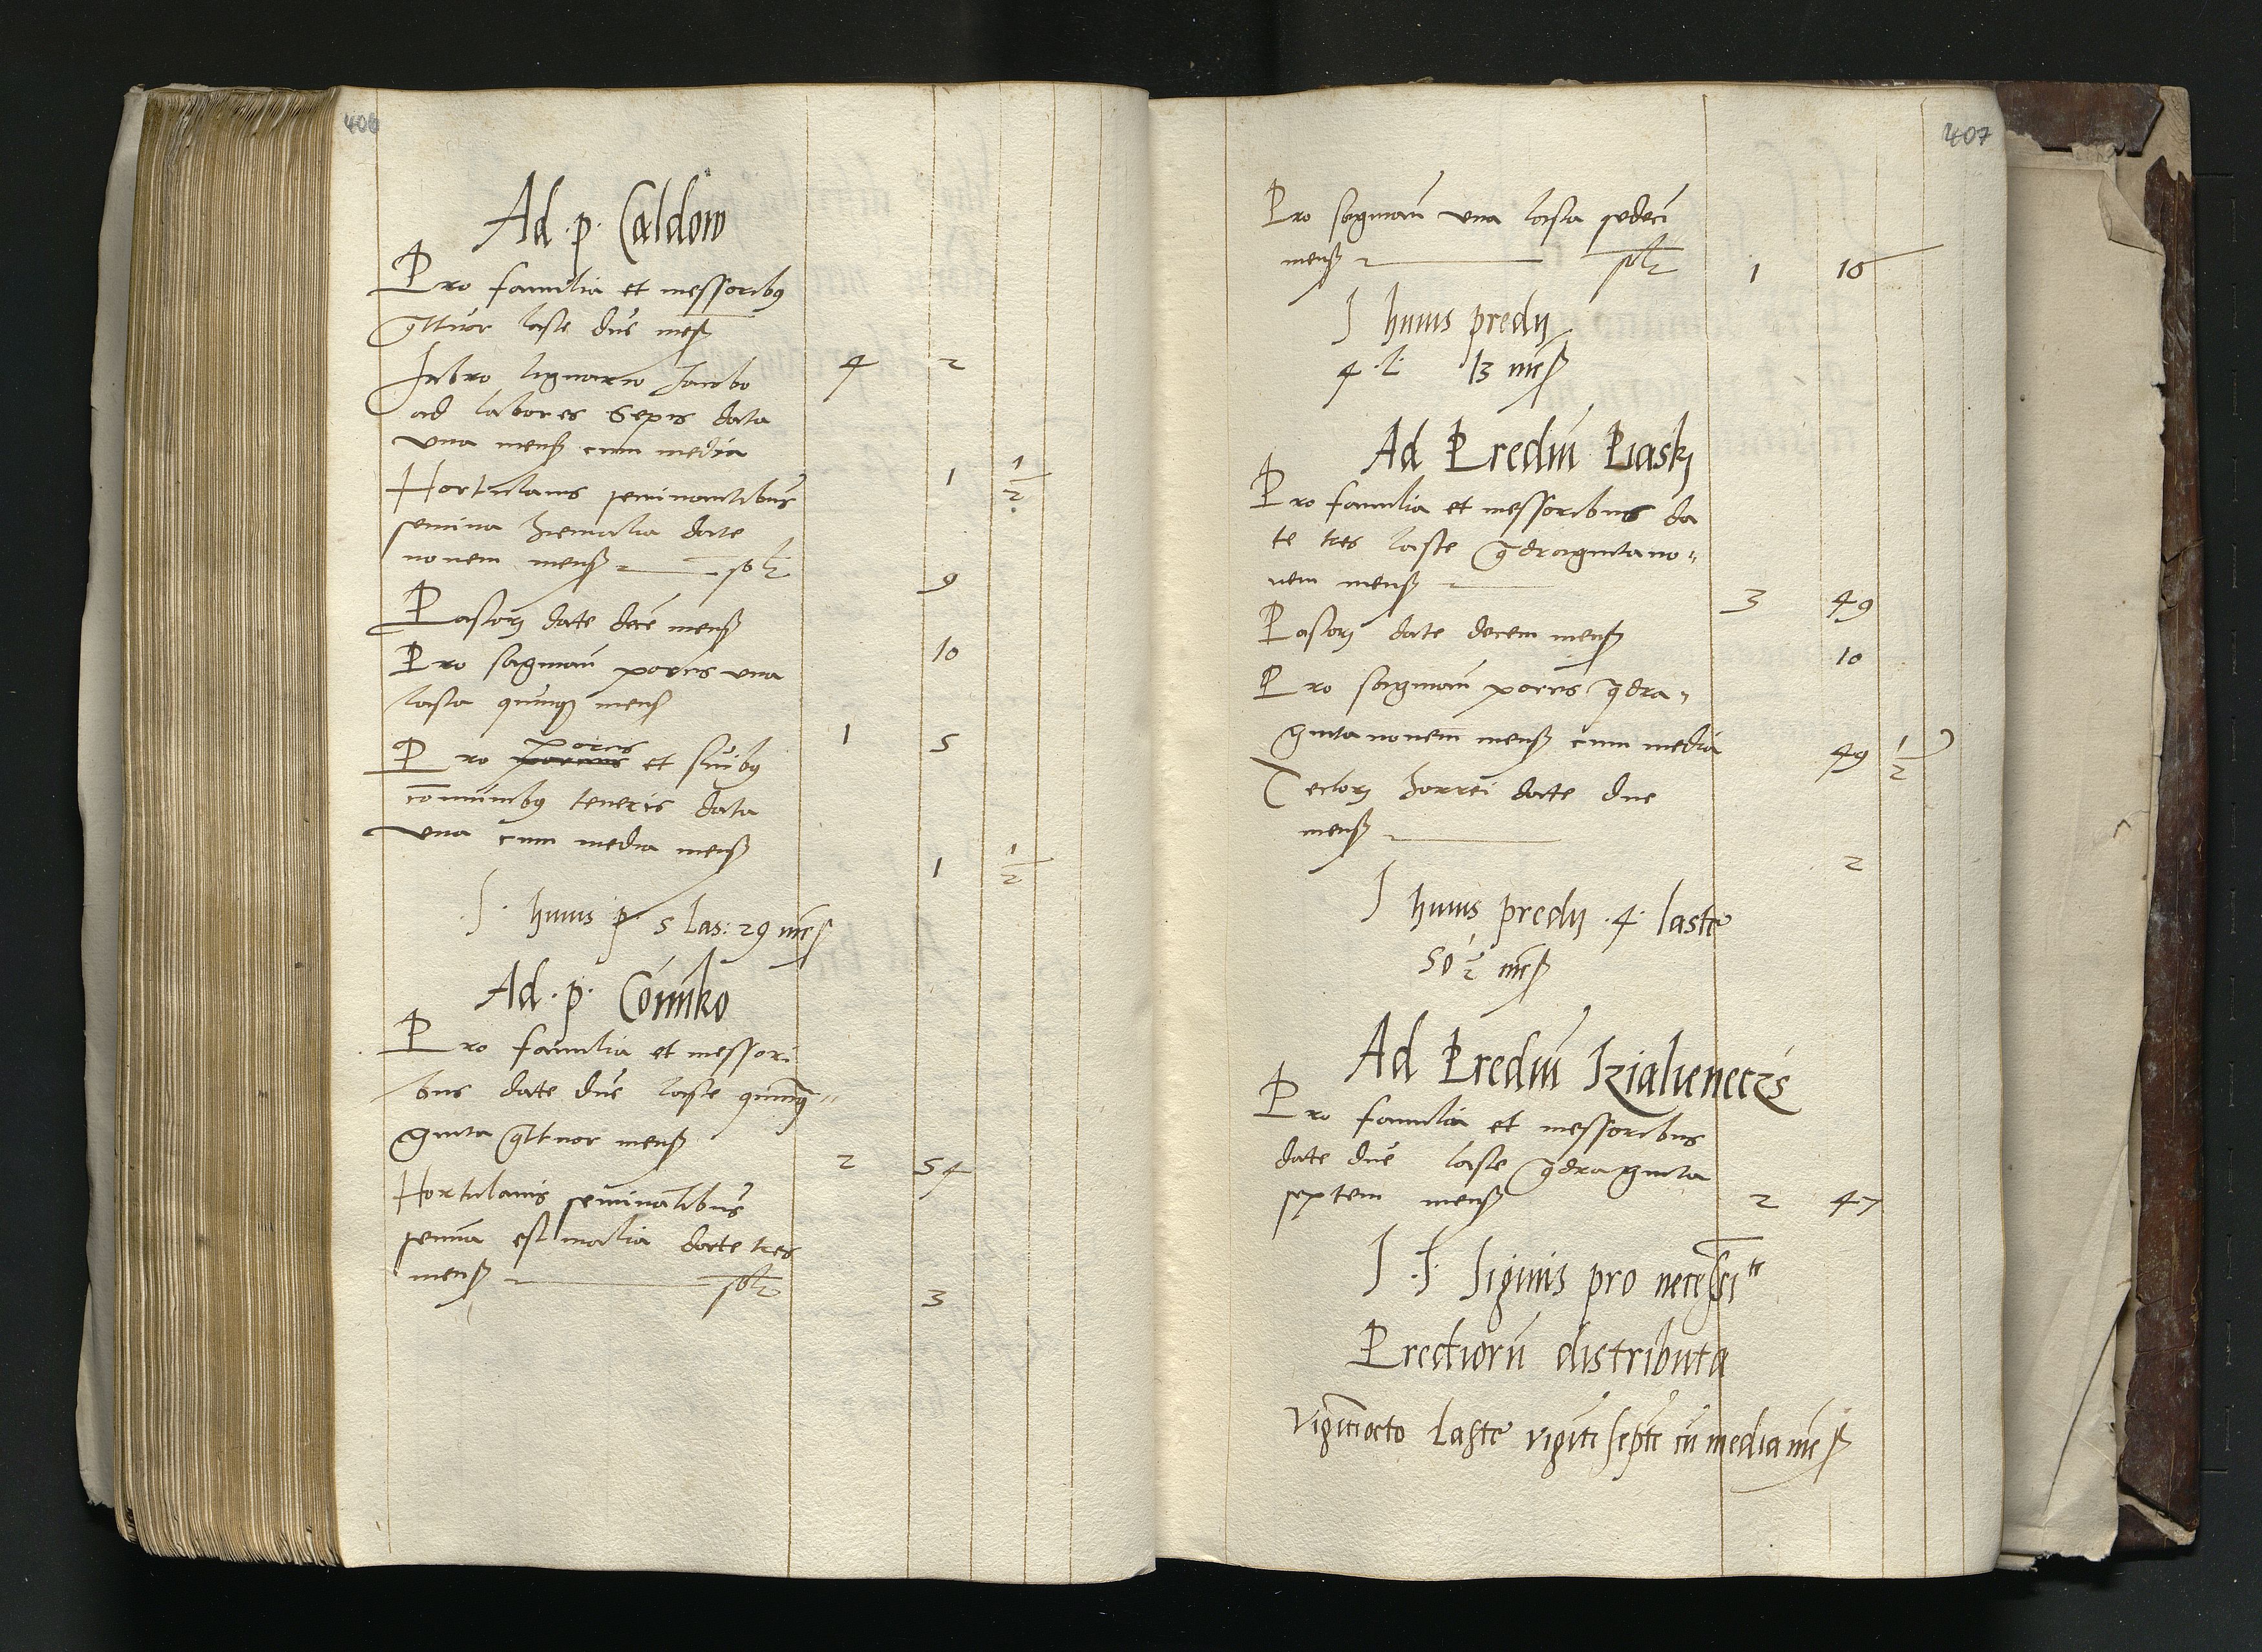 406
Ad · p · Caldow
Pro familia et messoribus
quattuor laste due mens
4 2
Fabro lignario Jacubo
ad labores sepis data
una mens cum media
1 1/2
Hortulanis seminantibus
semina hiemalia date
novem mens
9
Pastori date decem mens
10
Pro saginandis porcis una
lasta quinque mens
1 5
porcis
Pro et suibus
communibus teneris data
una cum media mens
1 1/2
S · huius p · 5 Las: 29 mens
Ad · p · Comiko
Pro familia et messori
bus date due laste quinqua=
ginta quattuor mens
2 54
Hortulanis seminantibus
semina estivalia date tres
mens
3
407
Pro saginan una lasta sedeci
mens
1 16
S huius predii
4 · l: 13 mens
Ad Predium Piaski
Pro familia et messoribus da
te tres laste quadragintano=
vem mens
3 49
Pastori date decem mens
10
Pro saginan porcis quadra=
gintanovem mens cum media
49 1/2
Tectori horrei date due
mens
2
S huius predii · 4 · laste
50 1/2 mens
Ad Predium
Pro familia et messoribus
date due laste quadraginta
septem mens
2 47
S · S · siliginis pro necessitate
Prediorum distributa
vigintiocto Laste viginti septem cum media mens